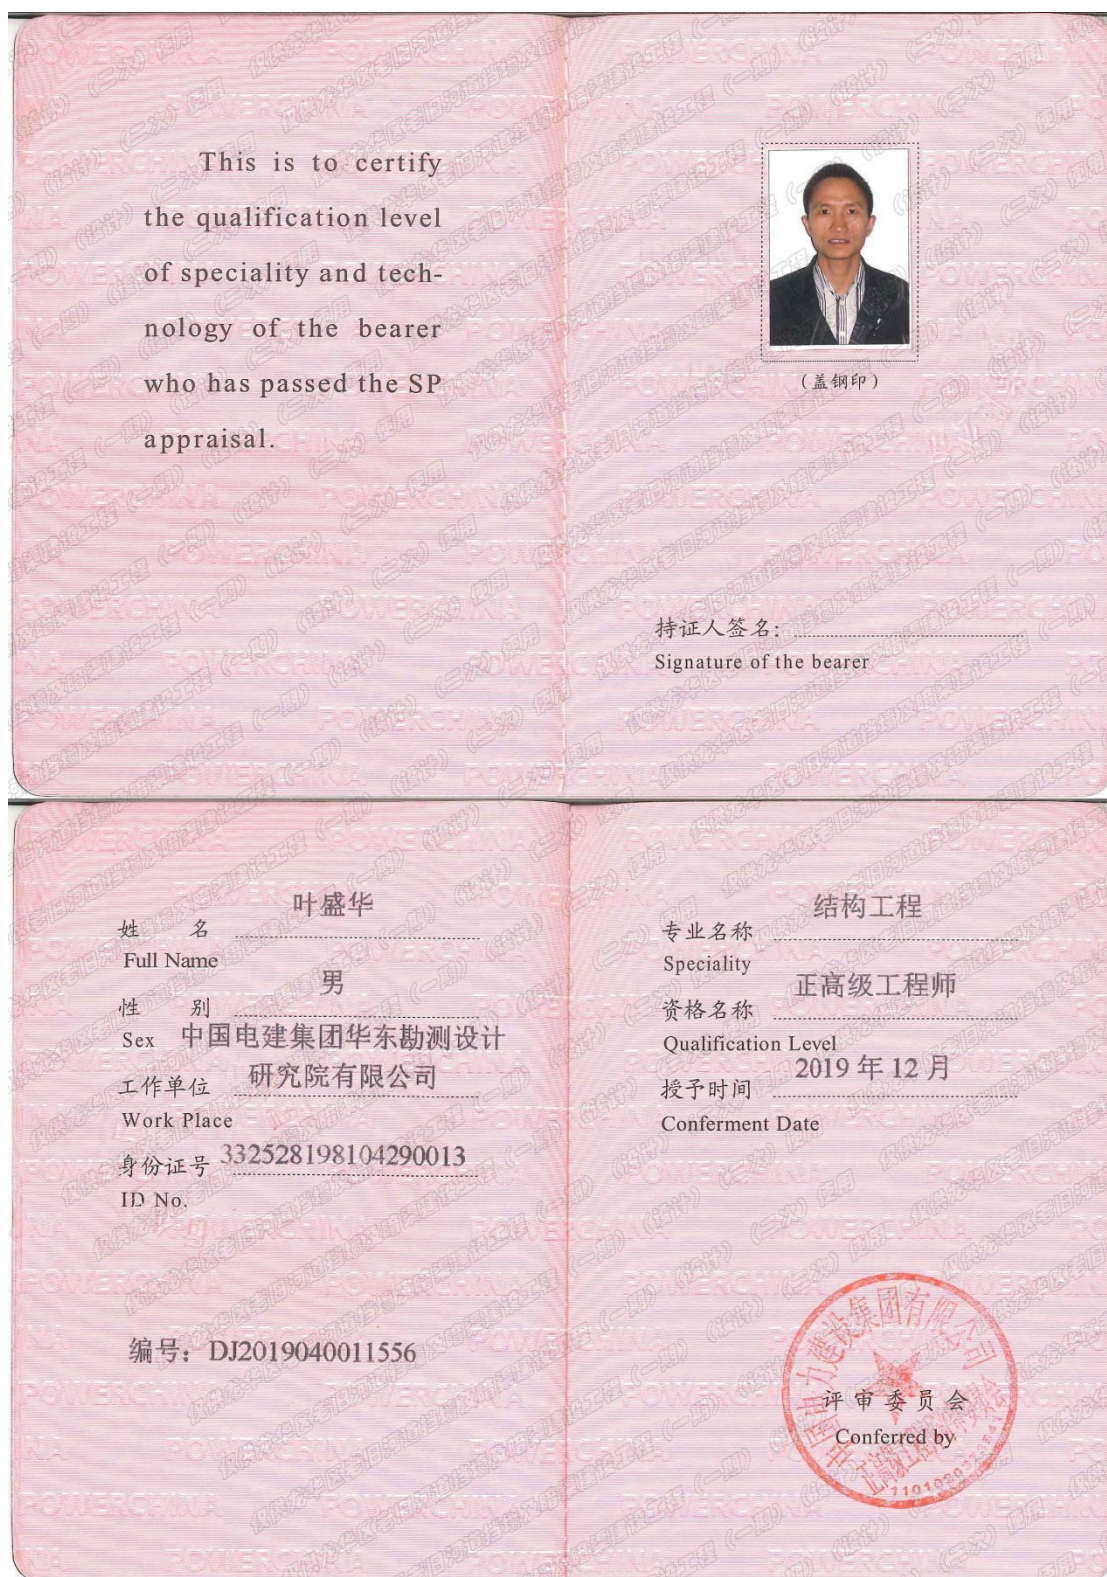 This is to certify
the qualification level
of speciality and tech-
nology of the bearer
who has passed the SP
appraisal.
(盖钢印)
持证人签名:
Signature of the bearer
叶盛华
姓 名
Full Name
男
性 别
Sex
中国电建集团华东勘测设计
研究院有限公司
工作单位
Work Place
332528198104290013
身份证号
ID No.
编号：DJ2019040011556
结构工程
专业名称
Speciality
正高级工程师
资格名称
Qualification Level
2019 年 12 月
授予时间
Conferment Date
中国电力建设集团有限公司
评 审 委 员 会
Conferred by
POWERCHINA